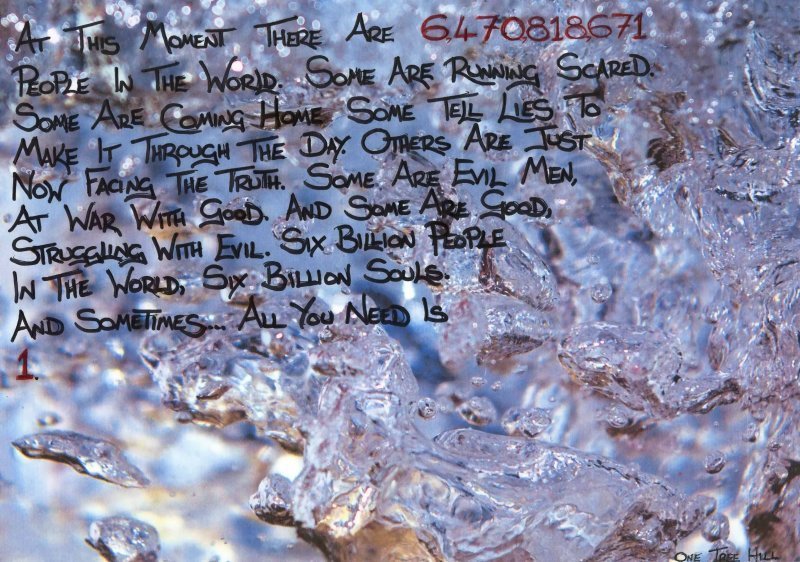 At This Moment There Are 6,470,818,671
People In The World. Some Are Running Scared.
Some Are Coming Home. Some Tell Lies To
Make It Through The Day. Others Are Just
Now Facing The Truth. Some Are Evil Men,
At War With Good. And Some Are Good,
Struggling With Evil. Six Billion People
In The World, Six Billion Souls.
And Sometimes... All You Need Is
1.
One Tree Hill